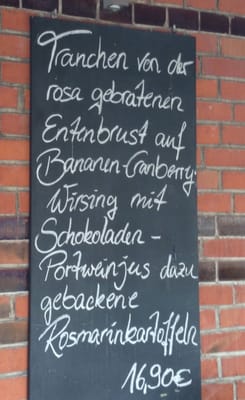 Tranchen von der
rosa gebratenen
Entenbrust auf
Bananen-Cranberry-
Wirsing mit
Schokoladen-
Portweinjus dazu
gebackene
Rosmarinkartoffeln
16,90€